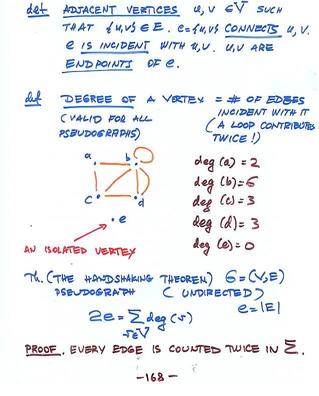 def ADJACENT VERTICES u, v ∈ V SUCH
THAT {u,v} ∈ E. e={u,v} CONNECTS u, v.
e IS INCIDENT WITH u, v. u,v ARE
ENDPOINTS OF e.
def DEGREE OF A VERTEX = # OF EDGES
INCIDENT WITH IT
(VALID FOR ALL
PSEUDOGRAPHS)
(A LOOP CONTRIBUTES
TWICE!)
a b
c d
e
deg (a) = 2
deg (b) = 6
deg (c) = 3
deg (d) = 3
deg (e) = 0
AN ISOLATED VERTEX
Th. (THE HANDSHAKING THEOREM) G = (V,E)
PSEUDOGRAPH (UNDIRECTED)
e = |E|
2e = Σ deg (v)
v∈V
PROOF. EVERY EDGE IS COUNTED TWICE IN Σ.
-168-